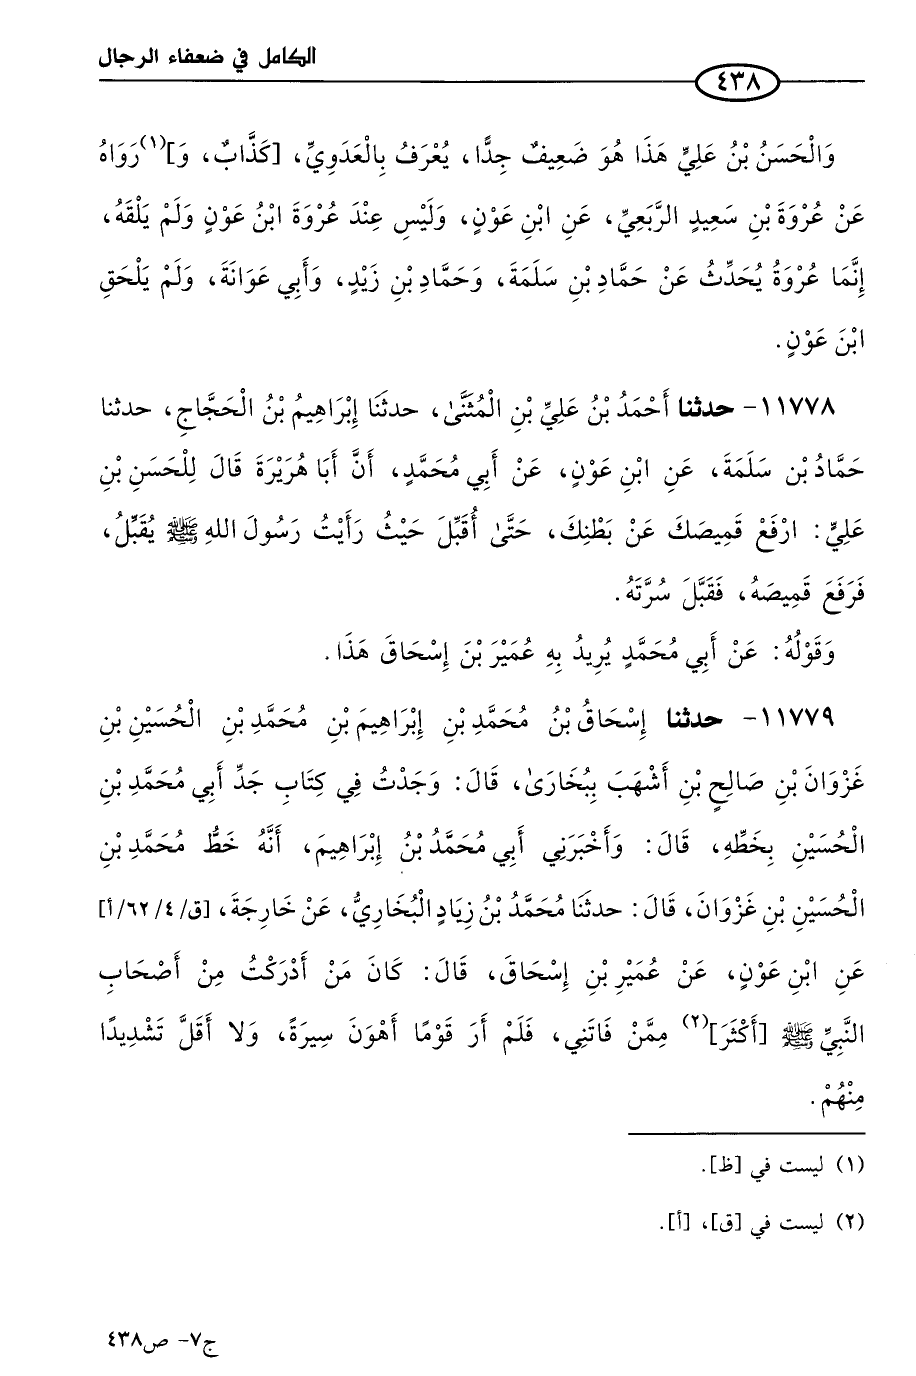 الكامل في ضعفاء الرجال
٤٣٨
وَالْحَسَنُ بْنُ عَلِيٍّ هَذَا هُوَ ضَعِيفٌ جِدًّا، يُعْرَفُ بِالْعَدَوِيِّ، [كَذَّابٌ، وَ](١)رَوَاهُ
عَنْ عُرْوَةَ بْنِ سَعِيدٍ الرَّبَعِيِّ، عَنِ ابْنِ عَوْنٍ، وَلَيْسِ عِنْدَ عُرْوَةَ ابْنُ عَوْنٍ وَلَمْ يَلْقَهُ،
إِنَّمَا عُرْوَةُ يُحَدِّثُ عَنْ حَمَّادِ بْنِ سَلَمَةَ، وَحَمَّادِ بْنِ زَيْدٍ، وَأَبِي عَوَانَةَ، وَلَمْ يَلْحَقِ
ابْنَ عَوْنٍ.
١١٧٧٨- حدثنا أَحْمَدُ بْنُ عَلِيِّ بْنِ الْمُثَنَّىٰ، حدثَنَا إِبْرَاهِيمُ بْنُ الْحَجَّاجِ، حدثنا
حَمَّادُ بْن سَلَمَةَ، عَنِ ابْنِ عَوْنٍ، عَنْ أَبِي مُحَمَّدٍ، أَنَّ أَبَا هُرَيْرَةَ قَالَ لِلْحَسَنِ بْنِ
عَلِيٍّ: ارْفَعْ قَمِيصَكَ عَنْ بَطْنِكَ، حَتَّىٰ أُقَبِّلَ حَيْثُ رَأَيْتُ رَسُولَ اللهِ ﷺ يُقَبِّلُ،
فَرَفَعَ قَمِيصَهُ، فَقَبَّلَ سُرَّتَهُ.
وَقَوْلُهُ: عَنْ أَبِي مُحَمَّدٍ يُرِيدُ بِهِ عُمَيْرَ بْنَ إِسْحَاقَ هَذَا.
١١٧٧٩- حدثنا إِسْحَاقُ بْنُ مُحَمَّدِ بْنِ إِبْرَاهِيمَ بْنِ مُحَمَّدِ بْنِ الْحُسَيْنِ بْنِ
غَزْوَانَ بْنِ صَالِحٍ بْنِ أَشْهَبَ بِبُخَارَىٰ، قَالَ: وَجَدْتُ فِي كِتَابِ جَدِّ أَبِي مُحَمَّدِ بْنِ
الْحُسَيْنِ بِخَطِّهِ، قَالَ: وَأَخْبَرَنِي أَبِي مُحَمَّدُ بْنُ إِبْرَاهِيمَ، أَنَّهُ خَطُّ مُحَمَّدِ بْنِ
الْحُسَيْنِ بْنِ غَزْوَانَ، قَالَ: حدثَنَا مُحَمَّدُ بْنُ زِيَادٍ الْبُخَارِيُّ، عَنْ خَارِجَةَ، [ق/٦٢/٤/أ]
عَنِ ابْنِ عَوْنٍ، عَنْ عُمَيْرِ بْنِ إِسْحَاقَ، قَالَ: كَانَ مَنْ أَدْرَكْتُ مِنْ أَصْحَابِ
النَّبِيِّ ﷺ [أَكْثَرَ](٢) مِمَّنْ فَاتَنِي، فَلَمْ أَرَ قَوْمًا أَهْوَنَ سِيرَةً، وَلا أَقَلَّ تَشْدِيدًا
مِنْهُمْ.
(١) ليست في [ظ].
(٢) ليست في [ق]، [أ].
ج٧- ص٤٣٨